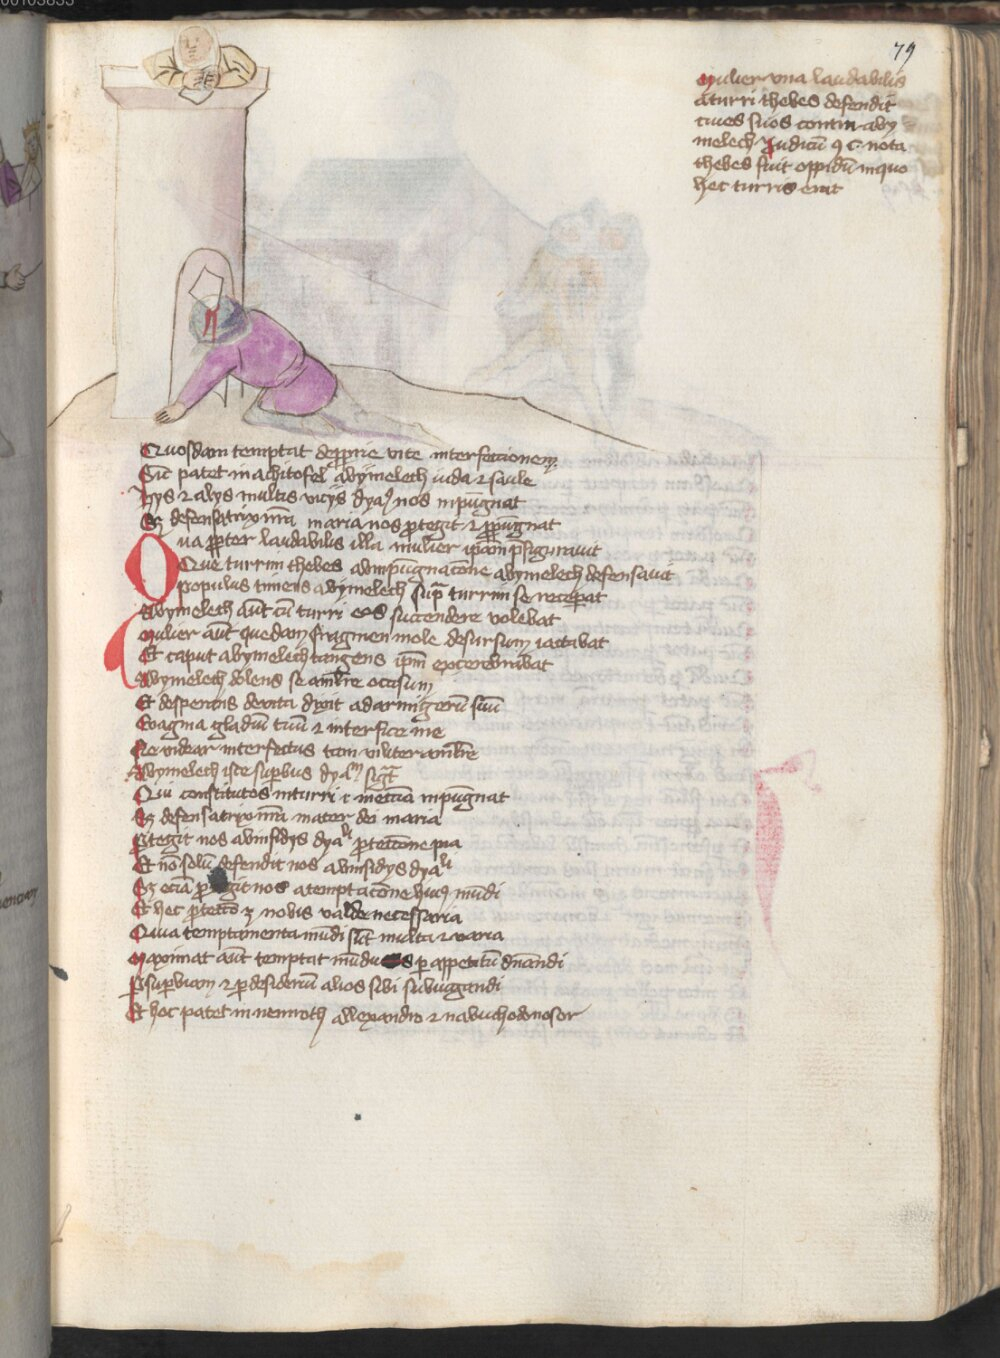 79
Mulier una laudabilis
a turri thebes defendit
ciues suos contra aby
melech Judicum 9 c. nota
thebes fuit oppidū in quo
hec turris erat
Quosdam temptat de pprie vite interfectionem
Sic patet in achitofel abymelech iuda ⁊ saule
Hys ⁊ alys multis vicijs dya9 nos inpūgnat
Sz defensatrix nrā maria nos ptegit ⁊ ppūgnat
Qua ppter laudabilis illa mulier ipam pfigurauit
Que turrim thebes ab inpūgnacōne abymelech defensauit
Populus timens abymelech supra turrim se receperat
Abymelech aūt cū turri eos succendere volebat
Mulier aūt quedam fragmen mole desursum iactabat
Et caput abymelech tangens ipm excerebrabat
Abymelech dolens se a mlre occisum
Et desperans de vita dyxit ad armigerū suū
Evagina gladiū tuū ⁊ interfice me
Ne videar interfectus tam viliter a mlre
Abymelech iste supbus dyalm sigt
Qui constitutos in turri i eccia inpūgnat
Sz defensatrix nrā mater dei maria
Ptegit nos ab insidys dyali ptectione pia
Et nō solū defendit nos ab insidys dyali
Sz eciā ptegit nos a temptacōne hui9 mūdi
Et hec ptectio ē nobis valde necessaria
Quia temptamenta mūdi sūt multa ⁊ varia
Maximat aūt temptat mūdus p appetitū dnāndi
P supbiam ⁊ p desideriū alios sibi subiuggandi
Et hoc patet in nemroth allexandro ⁊ nabuchodonosor